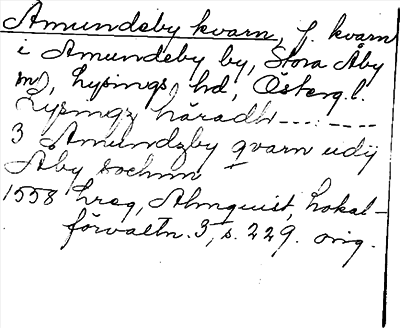 Amundeby kvarn, f. kvarn
i Amundeby by, Stora Åby
sn, Lysings hd, Österg. l.
Lysingz häradh --- . ---
3 Amundzby qvarn udij
Åby sochnn
1558 hreg, Almquist, Lokal-
förvaltn. 3, s. 229. orig.